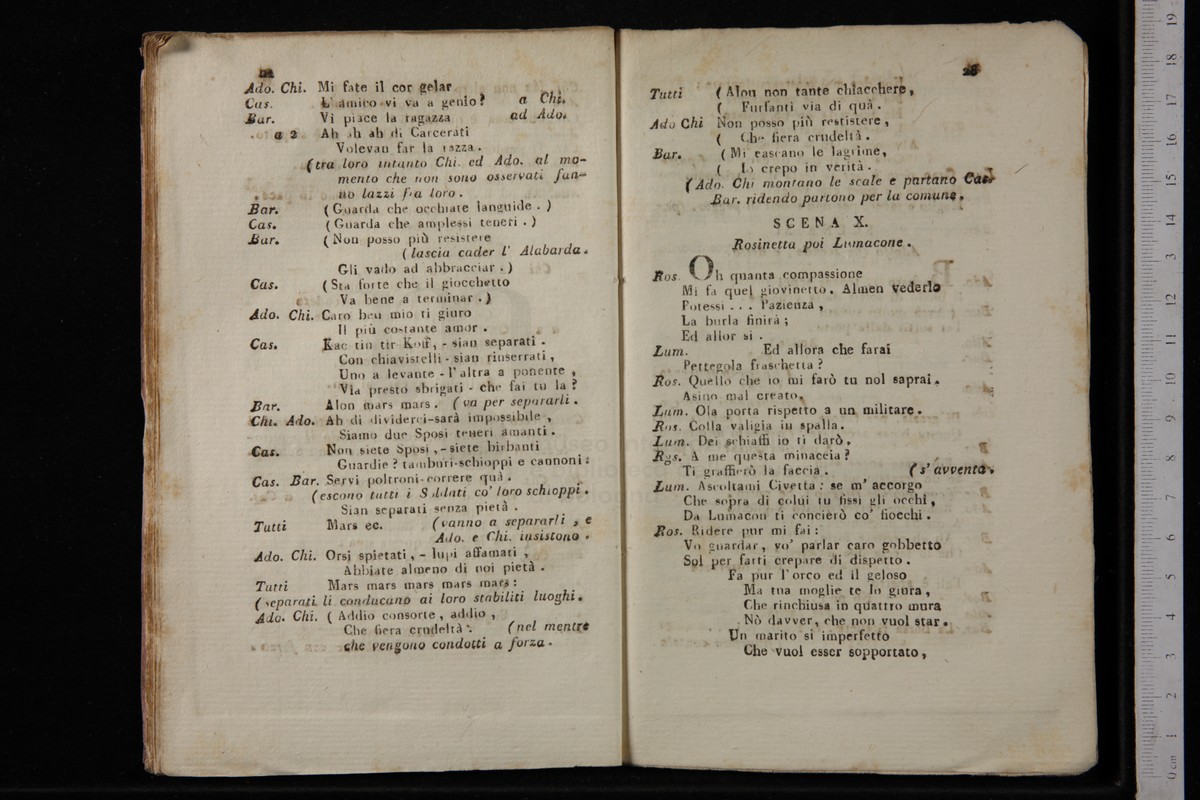 Ado. Chi. Mi fate il cor gelar
Cas. L' amico vi va a genio? a Chi.
Bar. Vi piace la ragazza ad Ado.
a 2 Ah ah ah di Carcerati
Volevan far la razza.
(tra loro intanto Chi. ed Ado. al mo-
mento che non sono osservati fan-
no lazzi fra loro.
Bar. (Guarda che occhiate languide.)
Cas. (Guarda che amplessi teneri.)
Bar. (Non posso più resistere
(lascia cader l' Alabarda.
Gli vado ad abbracciar.)
Cas. (Sta forte che il giocchetto
Va bene a terminar.)
Ado. Chi. Caro ben mio ti giuro
Il più costante amor.
Cas. Kac tin tir Koff, - sian separati.
Con chiavistelli - sian rinserrati,
Uno a levante - l'altra a ponente,
Via presto sbrigati - che fai tu la?
Bar. Alon mars mars. (va per separarli.
Chi. Ado. Ah di dividerci-sarà impossibile,
Siamo due Sposi teneri amanti.
Cas. Non siete Sposi,-siete birbanti
Guardie? tamburi-schioppi e cannoni:
Cas. Bar. Servi poltroni-correre quà.
(escono tutti i Soldati co' loro schioppi.
Sian separati senza pietà.
Tutti Mars ec. (vanno a separarli, e
Ado. e Chi. insistono.
Ado. Chi. Orsi spietati, - lupi affamati,
Abbiate almeno di noi pietà.
Tutti Mars mars mars mars mars:
(separati li conducano ai loro stabiliti luoghi.
Ado. Chi. (Addio consorte, addio,
Che fiera crudeltà. (nel mentre
che vengono condotti a forza.
23
Tutti (Alon non tante chiacchere,
( Furfanti via di quà.
Ado Chi Non posso più restistere,
( Che fiera crudeltà.
Bar. (Mi cascano le lagrime,
( Io crepo in verità.
(Ado. Chi montano le scale e partano Cas.
Bar. ridendo partono per la comune.
SCENA X.
Rosinetta poi Lumacone.
Ros. Oh quanta compassione
Mi fa quel giovinetto. Almen vederlo
Potessi... Pazienza,
La burla finirà;
Ed allor si.
Lum. Ed allora che farai
Pettegola fraschetta?
Ros. Quello che io mi farò tu nol saprai.
Asino mal creato.
Lum. Ola porta rispetto a un militare.
Ros. Colla valigia in spalla.
Lum. Dei schiaffi io ti darò,
Ros. A me questa minaccia?
Ti graffierò la faccia. (s' avventa.
Lum. Ascoltami Civetta: se m' accorgo
Che sopra di colui tu fissi gli occhi,
Da Lumacon ti concierò co' fiocchi.
Ros. Ridere pur mi fai:
Vo guardar, vo' parlar caro gobbetto
Sol per farti crepare di dispetto.
Fa pur l'orco ed il geloso
Ma tua moglie te lo giura,
Che rinchiusa in quattro mura
Nò davver, che non vuol star.
Un marito si imperfetto
Che vuol esser sopportato,
0 cm 1 2 3 4 5 6 7 8 9 10 11 12 13 14 15 16 17 18 19